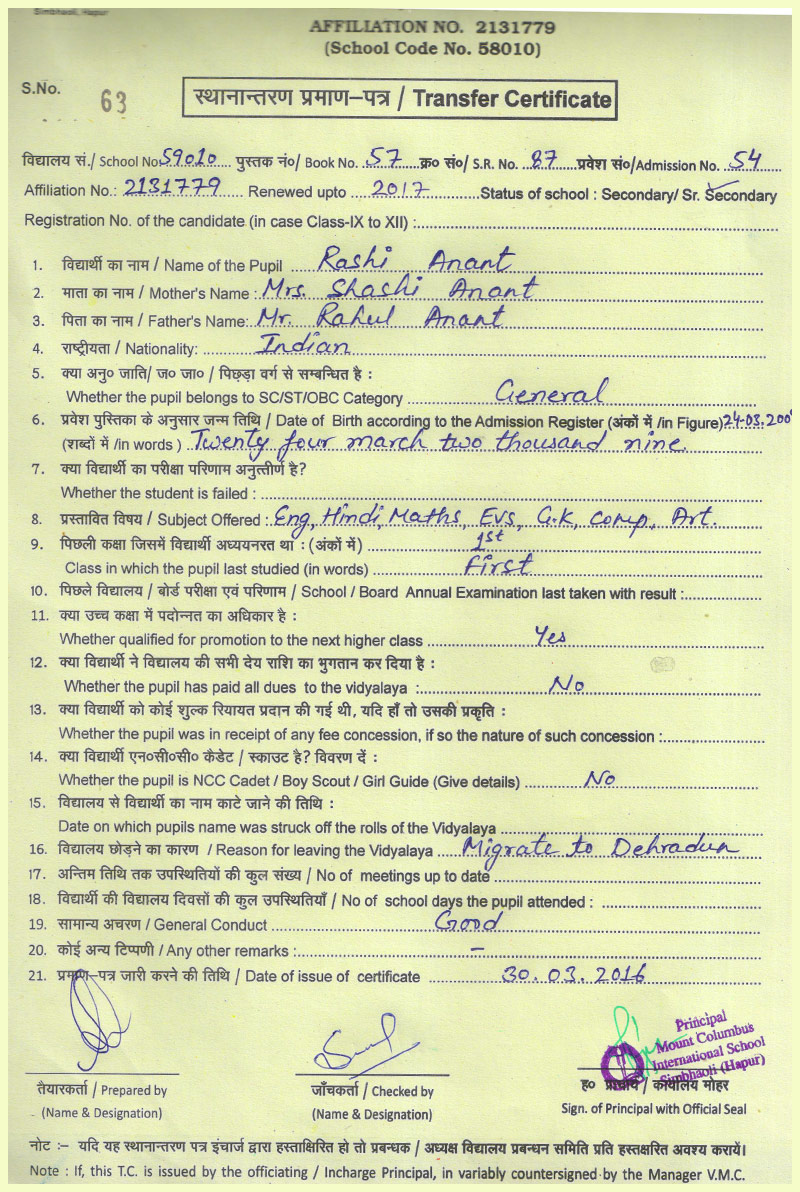 Simbhaoli, Hapur
AFFILIATION NO. 2131779
(School Code No. 58010)
S.No. 63
स्थानान्तरण प्रमाण–पत्र / Transfer Certificate
विद्यालय सं./ School No 59010 पुस्तक नं०/ Book No. 57 क्र० सं०/ S.R. No. 87 प्रवेश सं०/Admission No. 54
Affiliation No.: 2131779 Renewed upto 2017 Status of school : Secondary/ Sr. Secondary
Registration No. of the candidate (in case Class-IX to XII) :
1. विद्यार्थी का नाम / Name of the Pupil Rashi Anant
2. माता का नाम / Mother's Name : Mrs. Shashi Anant
3. पिता का नाम / Father's Name: Mr. Rahul Anant
4. राष्ट्रीयता / Nationality: Indian
5. क्या अनु० जाति/ ज० जा० / पिछड़ा वर्ग से सम्बन्धित है :
Whether the pupil belongs to SC/ST/OBC Category General
6. प्रवेश पुस्तिका के अनुसार जन्म तिथि / Date of Birth according to the Admission Register (अंकों में /in Figure) 24-03.200
(शब्दों में /in words ) Twenty four march two thousand nine.
7. क्या विद्यार्थी का परीक्षा परिणाम अनुत्तीर्ण है?
Whether the student is failed :
8. प्रस्तावित विषय / Subject Offered : Eng, Hindi, Maths, EVS, G.K, Comp, Art.
9. पिछली कक्षा जिसमें विद्यार्थी अध्ययनरत था : (अंकों में) 1st
Class in which the pupil last studied (in words) First
10. पिछले विद्यालय / बोर्ड परीक्षा एवं परिणाम / School / Board Annual Examination last taken with result :
11. क्या उच्च कक्षा में पदोन्नत का अधिकार है :
Whether qualified for promotion to the next higher class Yes
12. क्या विद्यार्थी ने विद्यालय की सभी देय राशि का भुगतान कर दिया है :
Whether the pupil has paid all dues to the vidyalaya : No
13. क्या विद्यार्थी को कोई शुल्क रियायत प्रदान की गई थी, यदि हाँ तो उसकी प्रकृति :
Whether the pupil was in receipt of any fee concession, if so the nature of such concession :
14. क्या विद्यार्थी एन०सी०सी० कैडेट / स्काउट है? विवरण दें :
Whether the pupil is NCC Cadet / Boy Scout / Girl Guide (Give details) No
15. विद्यालय से विद्यार्थी का नाम काटे जाने की तिथि :
Date on which pupils name was struck off the rolls of the Vidyalaya
16. विद्यालय छोड़ने का कारण / Reason for leaving the Vidyalaya Migrate to Dehradun
17. अन्तिम तिथि तक उपस्थितियों की कुल संख्य / No of meetings up to date
18. विद्यार्थी की विद्यालय दिवसों की कुल उपस्थितियाँ / No of school days the pupil attended :
19. सामान्य अचरण / General Conduct Good
20. कोई अन्य टिप्पणी / Any other remarks : –
21. प्रमाण–पत्र जारी करने की तिथि / Date of issue of certificate 30.03.2016
Principal
Mount Columbus
International School
Simbhaoli (Hapur)
तैयारकर्ता / Prepared by जाँचकर्ता / Checked by ह० प्राचार्य / कार्यालय मोहर
(Name & Designation) (Name & Designation) Sign. of Principal with Official Seal
नोट :– यदि यह स्थानान्तरण पत्र इंचार्ज द्वारा हस्ताक्षरित हो तो प्रबन्धक / अध्यक्ष विद्यालय प्रबन्धन समिति प्रति हस्तक्षरित अवश्य करायें।
Note : If, this T.C. is issued by the officiating / Incharge Principal, in variably countersigned by the Manager V.M.C.